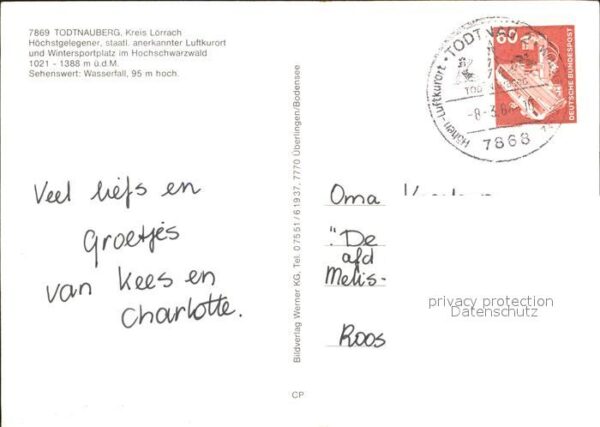 7869 TODTNAUBERG, Kreis Lörrach
Höchstgelegener, staatl. anerkannter Luftkurort
und Wintersportplatz im Hochschwarzwald
1021 - 1388 m ü.d.M.
Sehenswert: Wasserfall, 95 m hoch.
Veel liefs en
Groetjes
van Kees en
Charlotte.
Bildverlag Werner KG, Tel. 07551/61937, 7770 Überlingen/Bodensee
CP
60
DEUTSCHE BUNDESPOST
Höhen-Luftkurort
7868
Oma
"De
afd
Melis-
Roos
privacy protection
Datenschutz